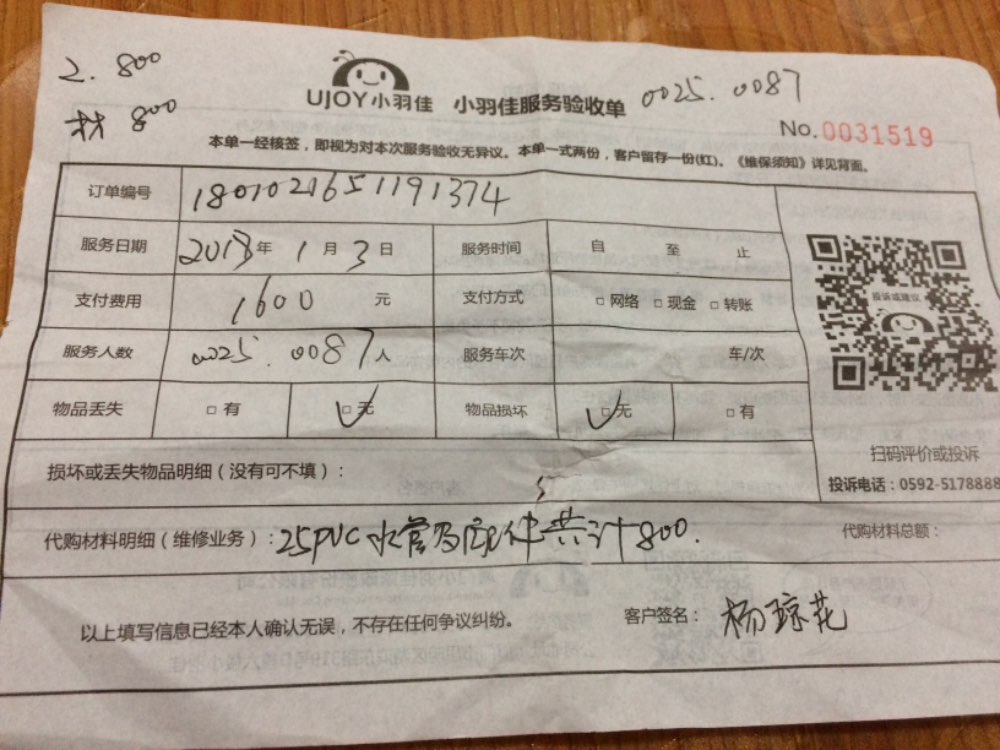 2. 800
材 800
UJOY小羽佳 小羽佳服务验收单 0025. 0087
No.0031519
本单一经核签，即视为对本次服务验收无异议。本单一式两份，客户留存一份(红)。《维保须知》详见背面。
订单编号 1801021651191374
服务日期 2018年 1月 3日 服务时间 自 至 止
投诉或建议
支付费用 1600 元 支付方式 □网络 □现金 □转账
服务人数 0025. 0087人 服务车次 车/次
物品丢失 □有 □无 物品损坏 □无 □有
扫码评价或投诉
损坏或丢失物品明细（没有可不填）：
投诉电话：0592-5178888
代购材料明细（维修业务）：25PVC水管及配件共计800. 代购材料总额：
以上填写信息已经本人确认无误，不存在任何争议纠纷。 客户签名： 杨琼花